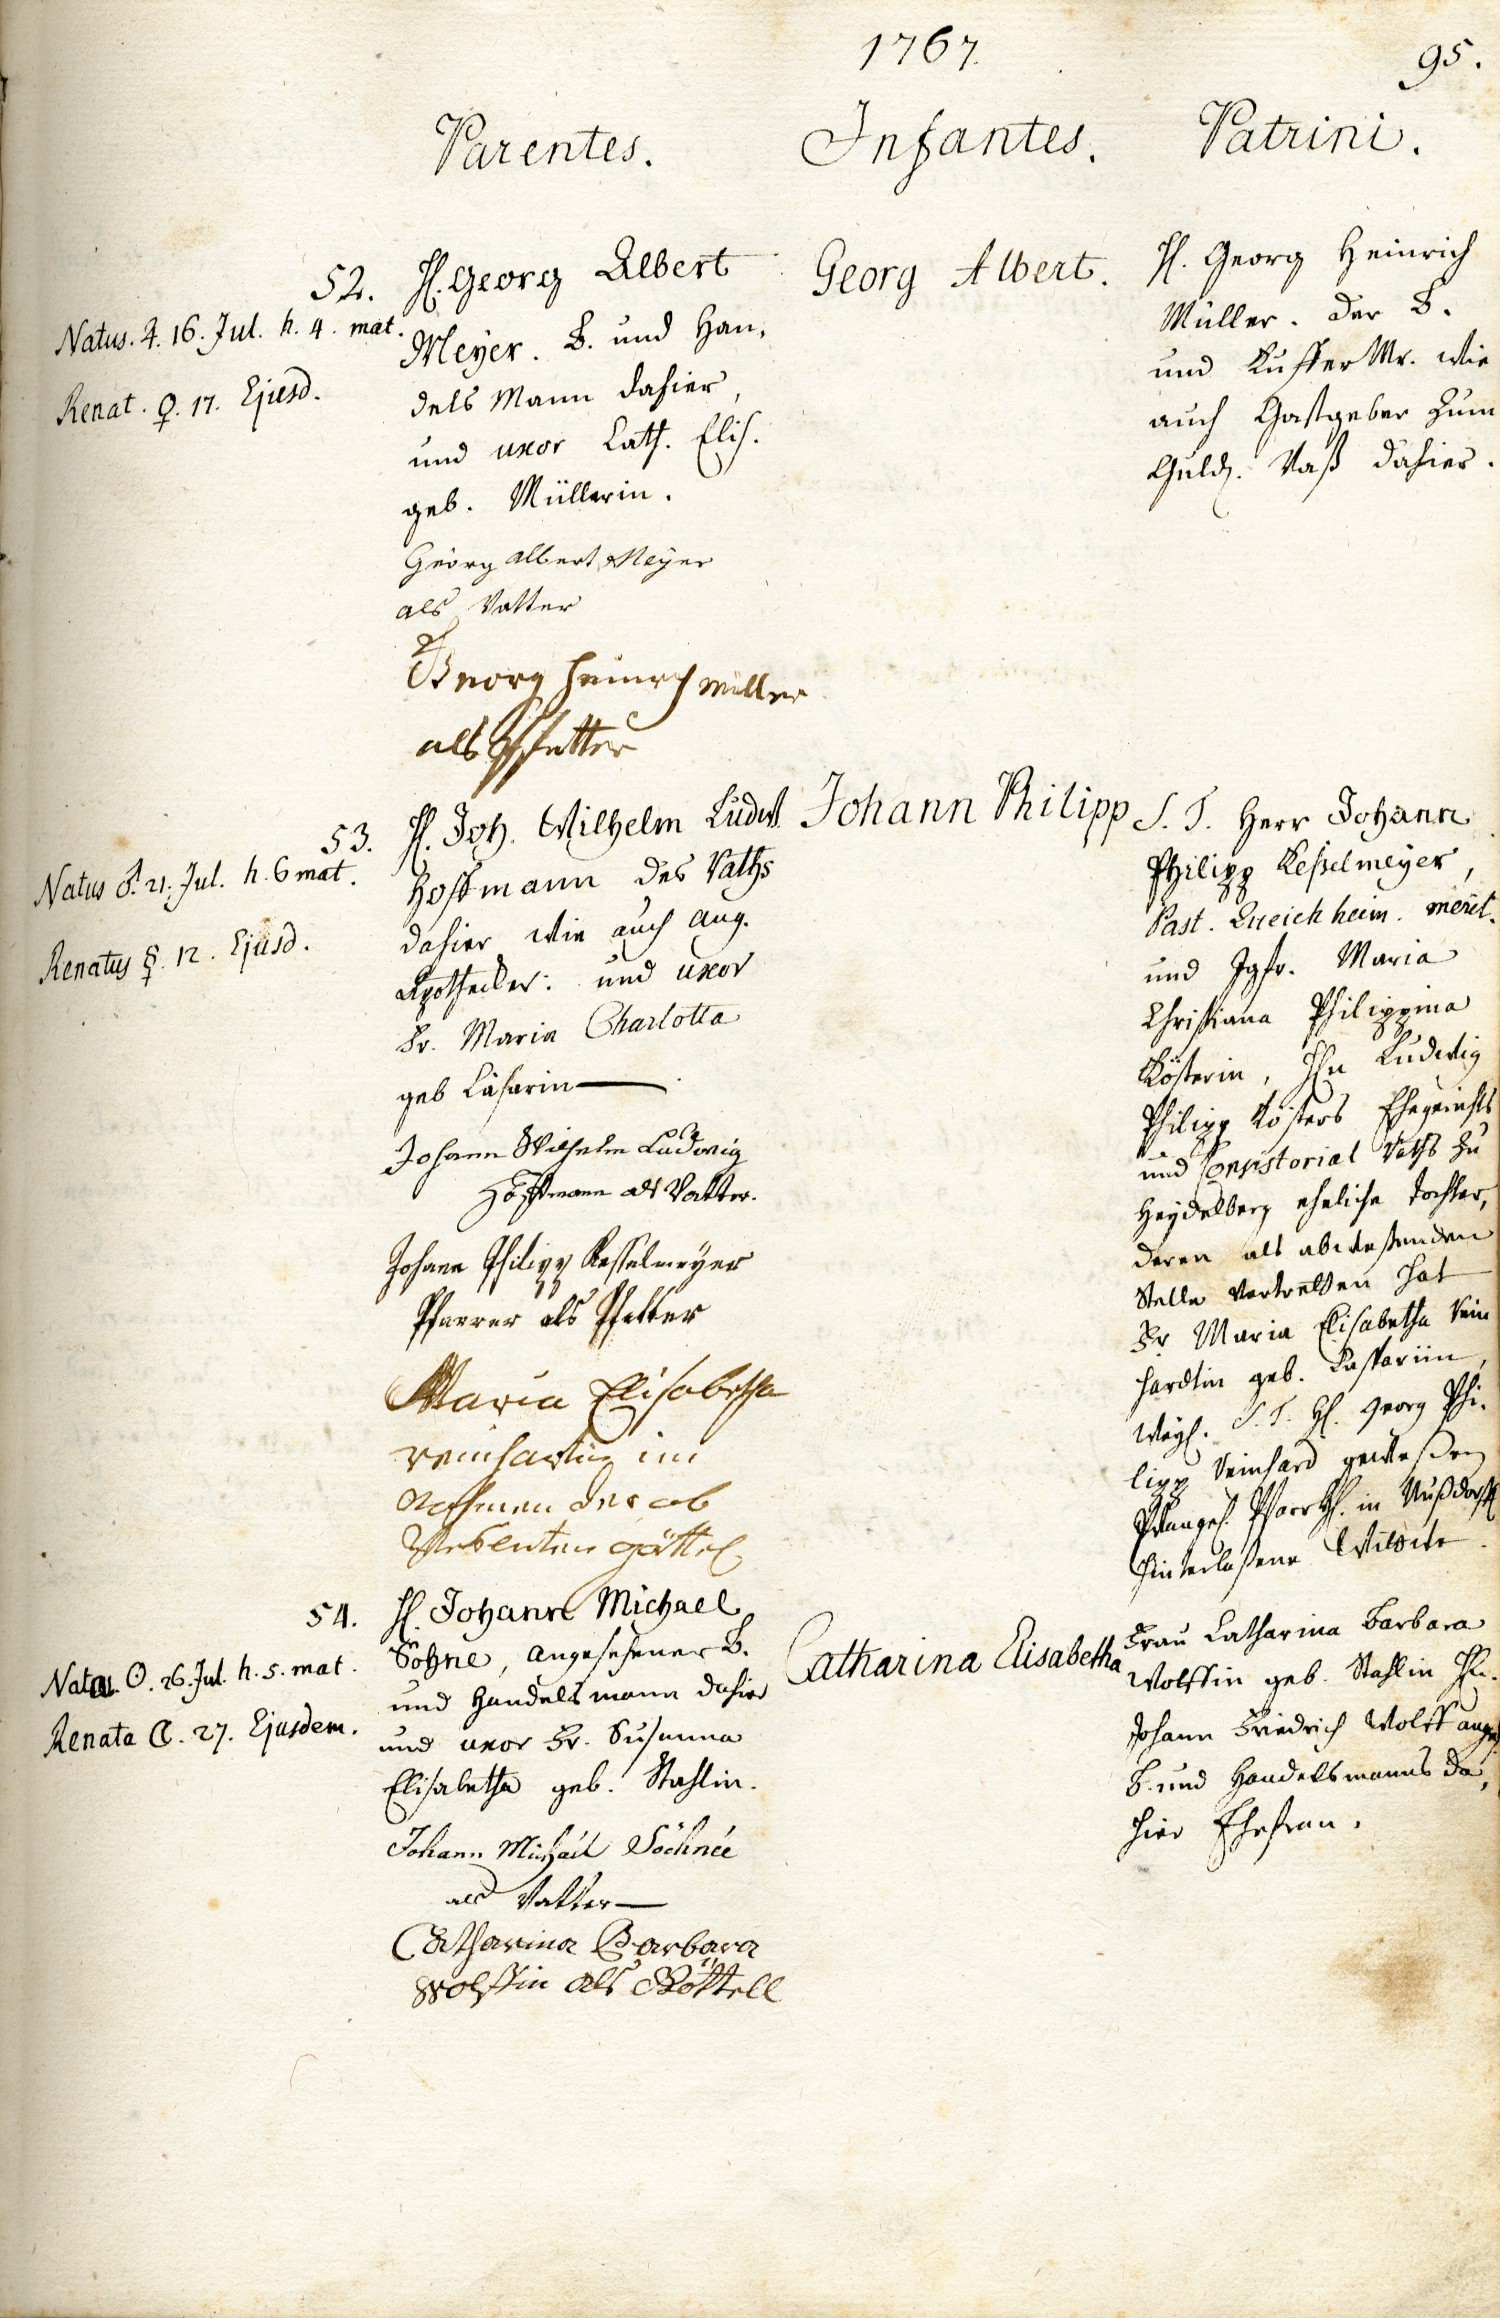 1767.
95.
Parentes. Infantes. Patrini.
52.
Natus. ♃. 16. Jul. h. 4. mat.
Renat. ♀. 17. Ejusd.
H. Georg Albert
Meyer. B. und Han,
dels Mann dahier,
und uxor Cath. Elis.
geb. Müllerin.
Georg Albert Meyer
als Vatter
Georg Heinrich Müller
als Pfetter
Georg Albert.
H. Georg Heinrich
Müller. der B.
und Kuffer Mr. wie
auch Gastgeber zum
Guld. Vaß dahier.
53.
Natus ♂. 21. Jul. h. 6 mat.
Renatus ☿. 12. Ejusd.
H. Joh. Wilhelm Ludw.
Hoffmann des Raths
dahier wie auch ang.
Apothecker: und uxor
Fr. Maria Charlotta
geb Cäsarin
Johann Wilhelm Ludwig
Hoffmann als Vatter.
Johann Philipp Kesselmeyer
Pfarrer als Pfetter
Maria Elisabetha
reinhartin im
Nahmen der ab
Wesenten göttel
Johann Philipp
S. T. Herr Johann
Philipp Keßelmeyer,
Past. Queichheim. merit.
und Jgfr. Maria
Christiana Philippina
Kösterin, Hn Ludwig
Philipp Kösters Ehegerichts
und Consistorial Raths zu
Heydelberg eheliche Tochter,
deren als abweßenden
Stelle vertretten hat
Fr Maria Elisabetha Rein
hardtin geb. Caspariin,
Weyl. S. T. H. Georg Phi-
lipp Reinhard geweßen
Evangel. Pfarrh. in Nußdorff
hinterlaßene Wittwe.
54.
Nata ☉. 26. Jul. h. 5. mat.
Renata ☾. 27. Ejusdem.
H. Johann Michael
Sohne, angesehener B.
und Handelsmann dahier
und uxor Fr. Susanna
Elisabetha geb. Stahlin.
Johann Michael Söhnée
als Vatter
Catharina Barbara
Wolffin als Göttell
Catharina Elisabetha
Frau Catharina Barbara
Wolffin geb. Stahlin Hn.
Johann Friedrich Wolff anges
B. und Handelsmanns da,
hier Ehefrau.